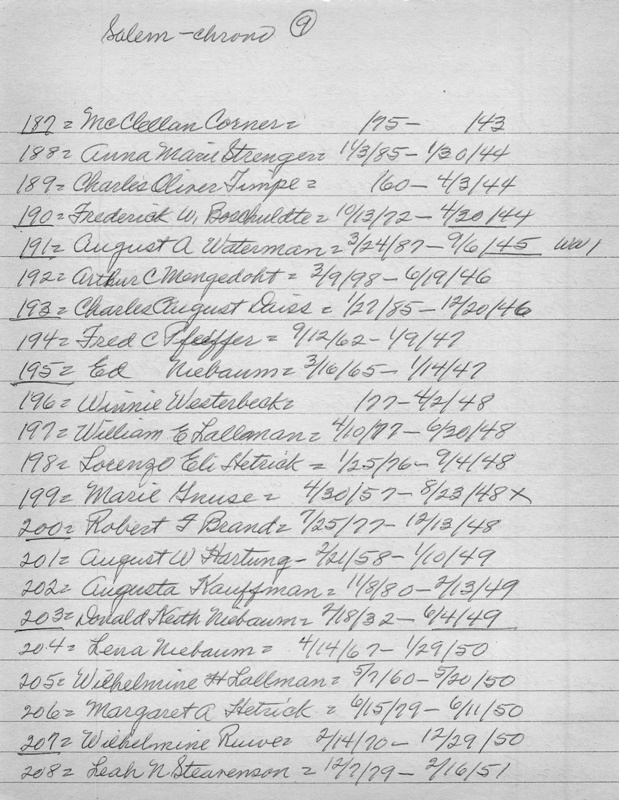 Salem - chrono 9
187 = McClellan Corner = /75 - /43
188 = Anna Marie Strenger = 11/3/85 - 1/30/44
189 = Charles Oliver Timpe = /60 - 4/3/44
190 = Frederick W. Boschuldte = 10/13/72 - 4/20/44
191 = August A Waterman = 3/24/87 - 9/6/45 WW1
192 = Arthur C Mengedoht = 3/9/98 - 6/19/46
193 = Charles August Duiss = 1/27/85 - 12/20/46
194 = Fred C Pfeiffer = 9/12/62 - 1/9/47
195 = Ed Niebaum = 3/16/65 - 1/14/47
196 = Winnie Westerbeck = /77 - 4/2/48
197 = William E Lallman = 4/10/77 - 6/30/48
198 = Lorenzo Eli Hetrick = 1/25/76 - 9/4/48
199 = Marie Gnuse = 4/30/57 - 8/23/48 x
200 = Robert F Brand = 7/25/77 - 12/13/48
201 = August W Hartung - 2/21/58 - 1/10/49
202 = Augusta Kauffman = 11/8/80 - 2/13/49
203 = Donald Keith Niebaum = 2/18/32 - 6/4/49
204 = Lena Niebaum = 4/14/67 - 1/29/50
205 = Wilhelmine H Lallman = 5/7/60 - 5/20/50
206 = Margaret A Hetrick = 6/15/79 - 6/11/50
207 = Wilhelmine Ruwe = 2/14/70 - 12/29/50
208 = Leah N Stearenson = 12/7/79 - 2/16/51